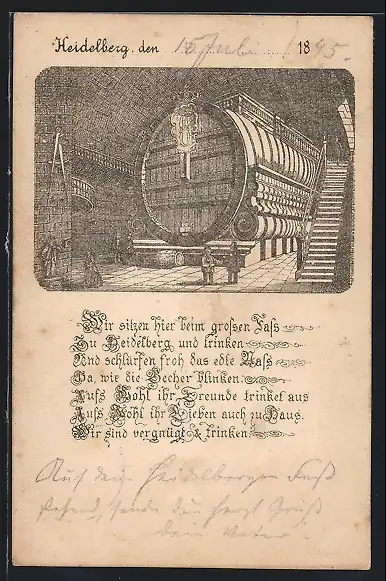 Heidelberg, den 15 Juli 1895.
Wir sitzen hier beim grossen Fass
Zu Heidelberg und trinken
Und schlürfen froh das edle Nass
Ja, wie die Becher blinken.
Aufs Wohl ihr Freunde trinket aus
Aufs Wohl ihr Lieben auch zu Haus.
Wir sind vergnügt & trinken
Auf dem Heidelberger Faß
stehend, sende dir herzl Gruß
dein Vater